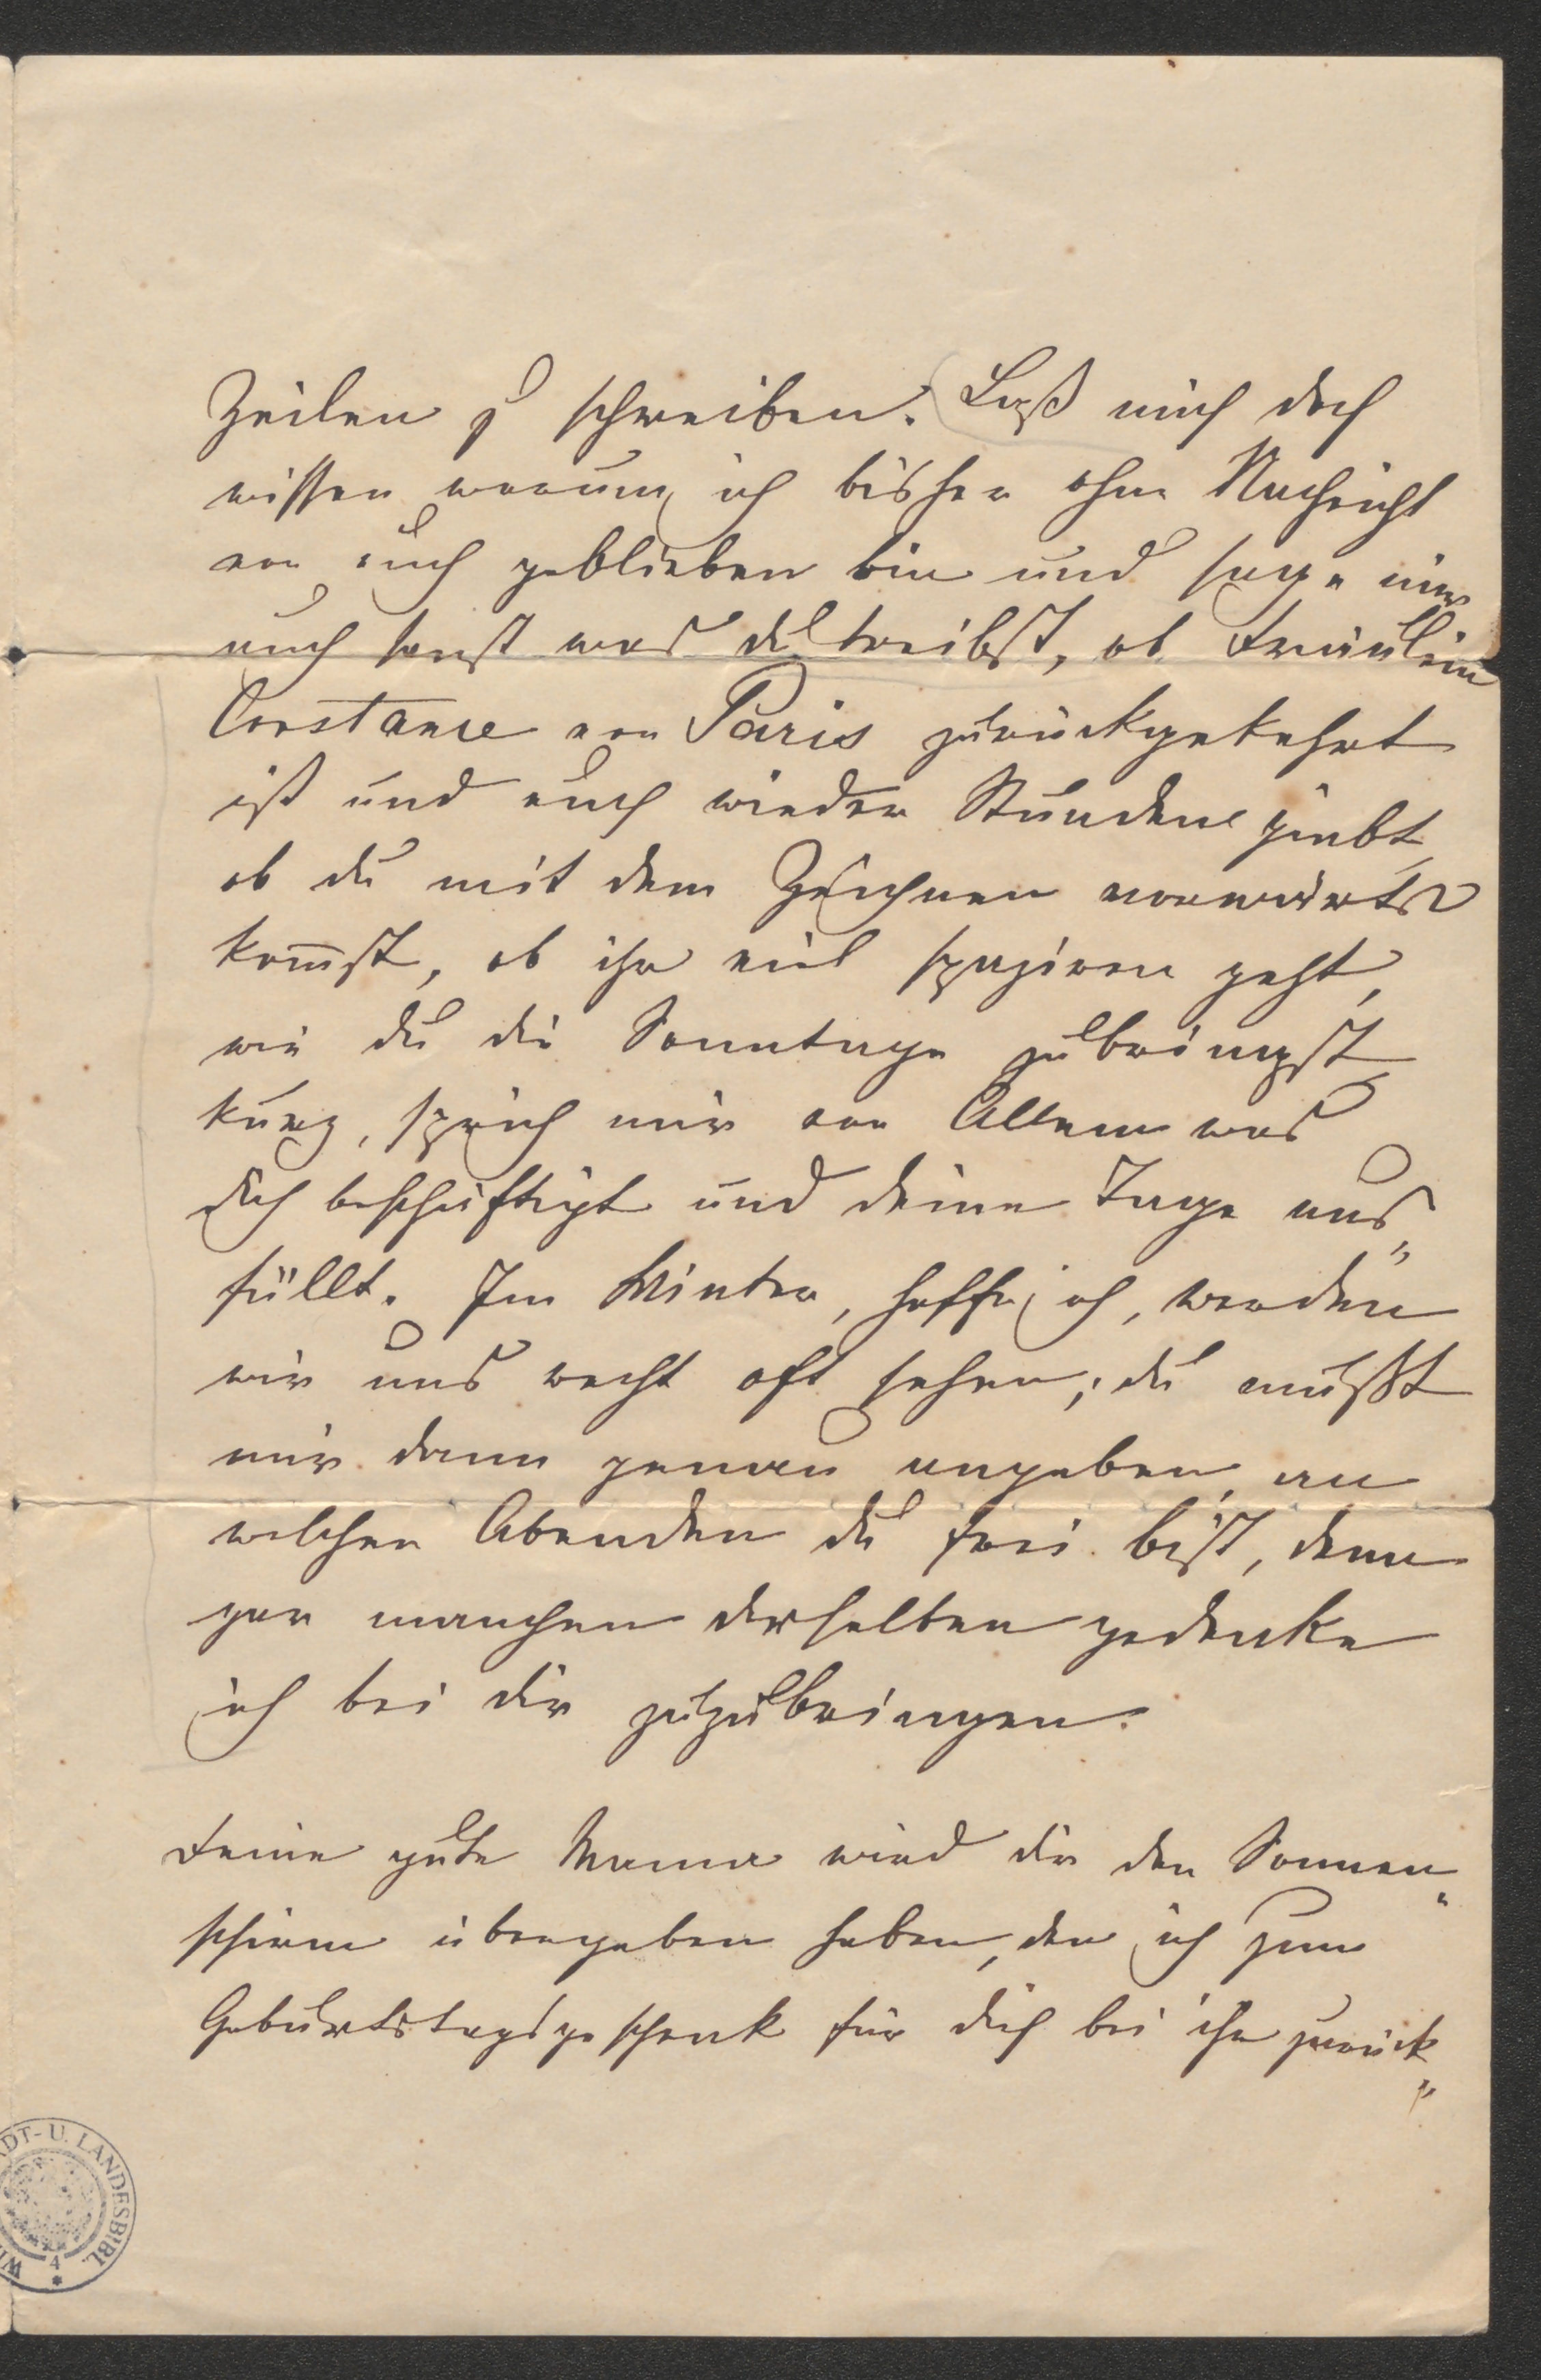 Zeilen zu schreiben. Laß mich doch
wissen warum ich bisher ohne Nachricht
von euch geblieben bin und sage mir
auch sonst was du treibst, ob Fräulein
Constance von Paris zurückgekehrt
ist und euch wieder Stunden giebt,
ob du mit dem Zeichnen vorwärts
kom̅st, ob ihr viel spaziren geht,
wie du die Sonntage zubringst,
kurz, sprich mir von Allem was
dich beschäftigt und deine Tage aus„
füllt. Im Winter, hoffe ich, werden
wir uns recht oft sehen; du mußt
mir dann genau angeben, an
welchen Abenden du frei bist, denn
gar manchen derselben gedenke
ich bei dir zuzubringen.
Deine gute Mama wird dir den Sonnen„
schirm übergeben haben, den ich zum
Geburtstagsgeschenk für dich bei ihr zurück„
DT- U. LANDESBIBL.
WI
4